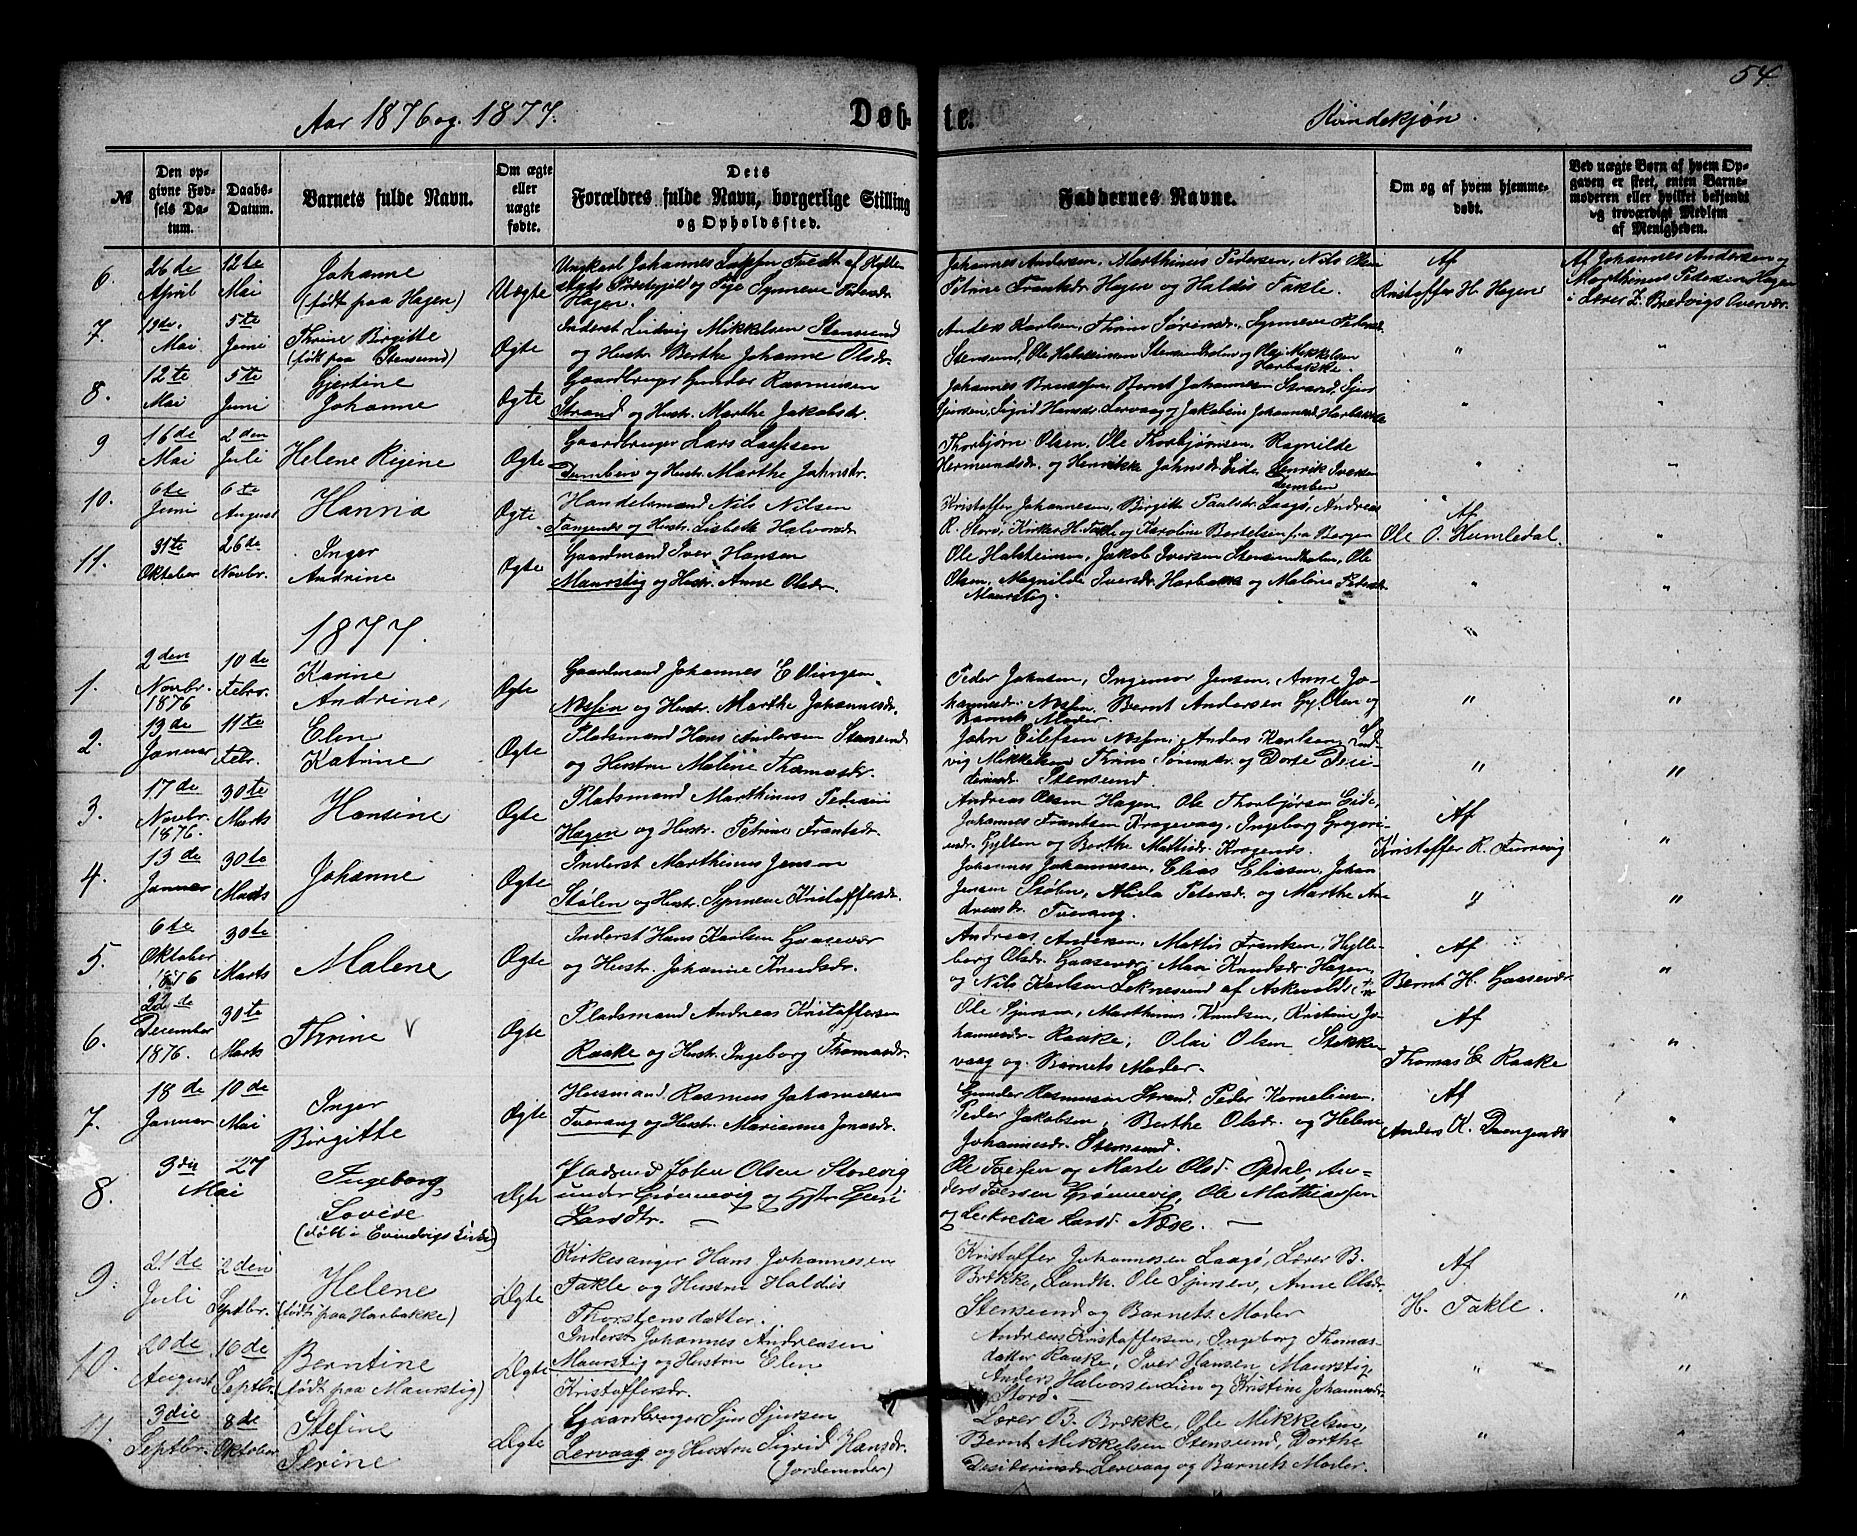 54.
Aar 1876 og 1877.
Døb-
te.
Kvindekjøn.
№
Den op-
givne Fød-
sels Da-
tum.
Daabs-
Datum.
Barnets fulde Navn.
Om ægte
eller
uægte
fødte.
Dets
Forældres fulde Navn, borgerlige Stilling
og Opholdssted.
Faddernes Navne.
Om og af hvem hjemme-
døbt.
Ved uægte Børn af hvem Op-
gaven er skeet, enten Barne-
moderen eller hvilket bekjendt
og troværdigt Medlem
af Menigheden.
6. 26de April 12te Mai
Johanne
(født paa Hagen)
Uægte
Ungkarl Johannes
og Pige Synneve
Hagen.
Johannes Andersen, Marthinus Pedersen, Nils Olsen
Petrine Frantsdr. Hagen og Haldis Takle.
Af
Kristoffer H. Hagen
Af Johannes Andersen og
Marthinus Pedersen Hagen
i Lærer
7. 13de Mai 5te Juni
Thrine Birgitte
(født paa Stensund)
Ægte
Inderst Ludvig Mikkelsen Stensund
og Hustr. Berthe Johanne Olsdr.
Anders Karlsen, Thrine Sørensdr., Synneve
Stensund, Ole Halsteinsen Stensundholm og Mikkelsen
Harbakke.
"
"
8. 12te Mai 5te Juni
Gjertine
Johanne
Ægte
Gaardbruger Gunder Rasmusen
Strand og Hustr. Marthe Jakobsdr.
Johannes Bernt Johannesen Strand, Sjur
Sjursen, Sigrid Hansdr. Lervaag og Johannesdr. Harbakke
"
"
9 16de Mai 2den Juli
Helene Regine
Ægte
Gaardbruger Lars
og Hustr. Marthe Johnsdr.
Thorbjørn Olsen, Ole Thorbjørnsen, Ragnilde
Hermundsdr. og Henrikke Johnsdr. Eide. Henrik Iversen
"
"
10. 6te Juni 6te August
Hanna
Ægte
Handelsmand Nils Nilsen
Tangenes og Hustr. Lisbeth Halvorsdr.
Kristoffer Johannesen, Birgitte Paulsdr. Laagø, Andreas
R. Storø, Kirkes. H. Takle og Karoline Bertelsen fra Bergen
Af
Ole O. Humledal.
"
11. 31te Oktober 26de Novbr.
Inger
Andrine
Ægte
Gaardmand Iver Hansen
Maurstig og Hustr. Anne Olsdr.
Ole Halsteinsen, Jakob Iversen Stensundholm, Ole
Olsen, Magnilde Iversdr. Harbakke og Malene Pedersdr.
Maurstig.
"
"
1877.
"
1. 2den Novbr. 1876 10de Febr.
Karine
Andrine
Ægte
Gaardmand Johannes Ellingsen
og Hustr. Marthe Johannesdr.
Peder Johnsen, Ingemor Jensen, Anne Jo-
hannesdr. Bernt Andersen Gylten og
Barnets Moder.
"
"
2. 13de Januar 11te Febr.
Elen
Katrine
Ægte
Pladsmand Hans Andersen Stensund
og Hustru Malene Thomasdr.
John Eilefsen Anders Karlsen, Lud-
vig Mikkelsen Thrine Sørensdr. og Dorte Desi-
deriusdr. Stensund.
"
"
3. 17de Novbr. 1876. 30te Marts
Hansine
Ægte
Pladsmand Marthinus Pedersen
Hagen og Hustr. Petrine Frantsdr.
Andreas Olsen Hagen, Ole Thorbjørnsen Eide,
Johannes Frantsen Krogevaag, Ingeborg Gregori-
usdr. Gylten og Berthe
Af
Kristoffer R.
"
4. 13de Januar 30te Marts
Johanne
Ægte
Inderst Marthinus Jensen
Stølen og Hustr. Synneve Kristoffersdr.
Johannes Johannesen, Elias Eliasen, Johan
Jensen Stølen, Petersdr. og Marthe An-
dreasdr. Tverang.
"
"
5. 6te Oktober 1876 30te Marts
Malene
Ægte
Inderst Hans Karlsen Gaasevær
og Hustr. Johanne Knudsdr.
Andreas Andersen, Mattis Frantsen, Hylle-
borg Olsdr. Gaasevær, Mari Knudsdr. Hagen,
og Nils Karlsen Leknesund af Askevold
Af
Bernt H. Gaasevær
"
6. 22de December 1876. 30te Marts
Thrine
Ægte
Pladsmand Andreas Kristoffersen
Raake og Hustr. Ingeborg Thomasdr.
Ole Sjursen, Marthinus Knudsen, Kristine Jo-
hannesdr. Raake, Olai Olsen Stokke-
vaag og Barnets Moder.
Af
Thomas E. Raake
"
7. 18de Januar 10de Mai
Inger
Birgitte
Ægte
Husmand Rasmus Johannesen
Tverang og Hustr. Marianne Jonasdr.
Gunder Rasmusen Strand, Peder Kornelius.
Peder Jakobsen, Berthe Olsdr. og Helene
Johannesdr. Stensund.
Af
Anders K.
"
8. 3die Mai 27
Ingeborg
Lovise
(døbt i Evindvigs Kirke)
Ægte
Pladsmd. John Olsen Storevig
under Grønnevig og Hstr.
Larsdtr. —
Ole Iversen og Marte Olsd. Opdal, An-
ders Iversen Grønnevig, Ole Mathiassen
og Larsd. —
"
9. 21de Juli 2den Septbr.
Helene
(født paa Harbakke)
Ægte
Kirkesanger Hans Johannesen
Takle og Hustru Haldis
Thorstensdatter.
Kristoffer Johannesen Laagø, Lærer B.
Brække, Landh. Ole Sjursen, Anne Olsdr.
Stensund og Barnets Moder
Af
H. Takle.
"
10. 20de August 16de Septbr.
Berntine
(født paa Maurstig)
Ægte
Inderst Johannes Andreasen
Maurstig og Hustru Elen
Kristoffersdr.
Andreas Kristoffersen, Ingeborg Thomas-
datter Raake, Iver Hansen, Maurstig,
Anders Halvorsen Lien og Kristine Johannesdr.
Storø.
"
"
11. 3die Septbr. 8de Oktober
Stefine
Serine
Ægte
Gaardbruger Sjur Sjursen
Lervaag og Hustru Sigrid Hansdr.
(Jordemoder)
Lærer B. Brække, Ole Mikkelsen,
Bernt Mikkelsen Stensund, Dorthe
Desideriusdr. Lervaag og Barnets Moder.
"
"